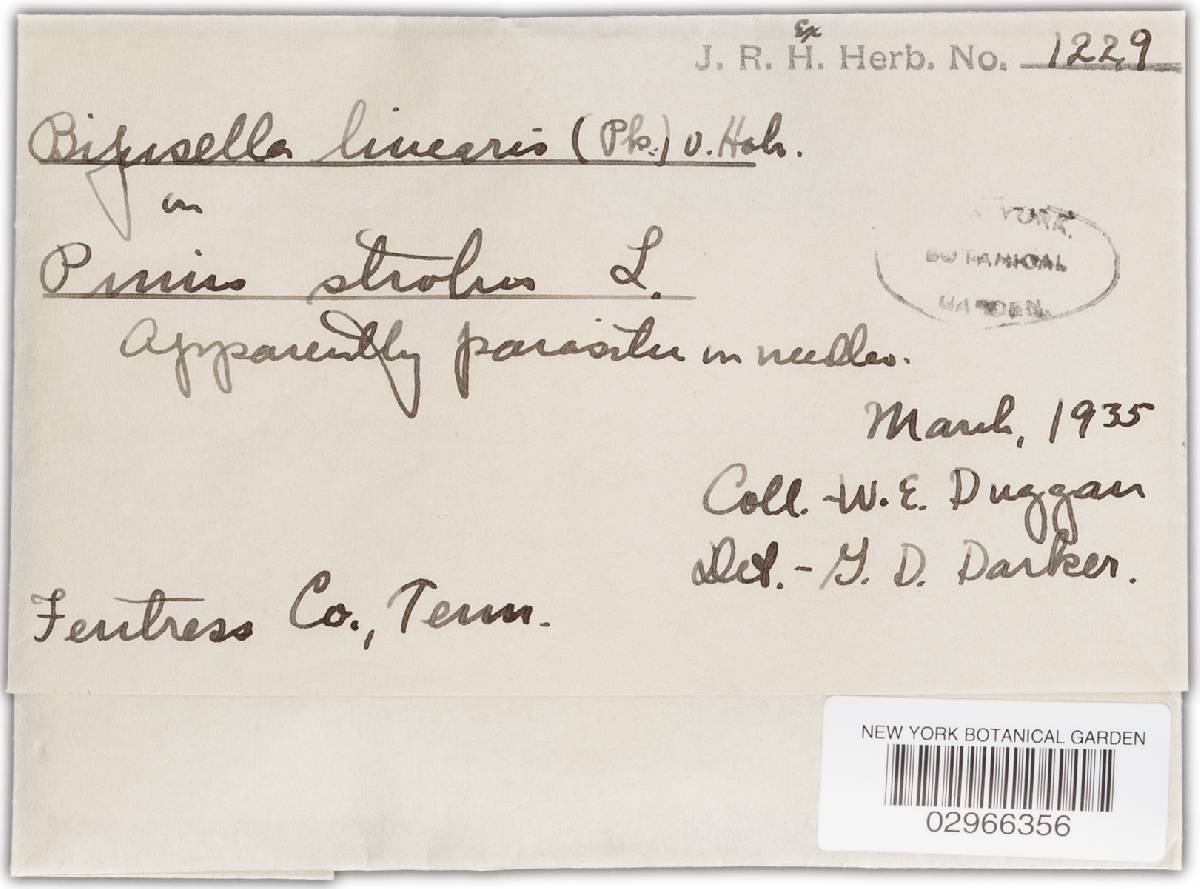 Ex
J. R. H. Herb. No. 1229
Bifusella linearis (Pk.) v. Hoh.
on
Pinus strobus L.
YORK
BOTANICAL
GARDEN
Apparently parasitic on needles.
March, 1935
Coll. - W. E. Duggan
Det. - G. D. Darker.
Fentress Co., Tenn.
NEW YORK BOTANICAL GARDEN
02966356